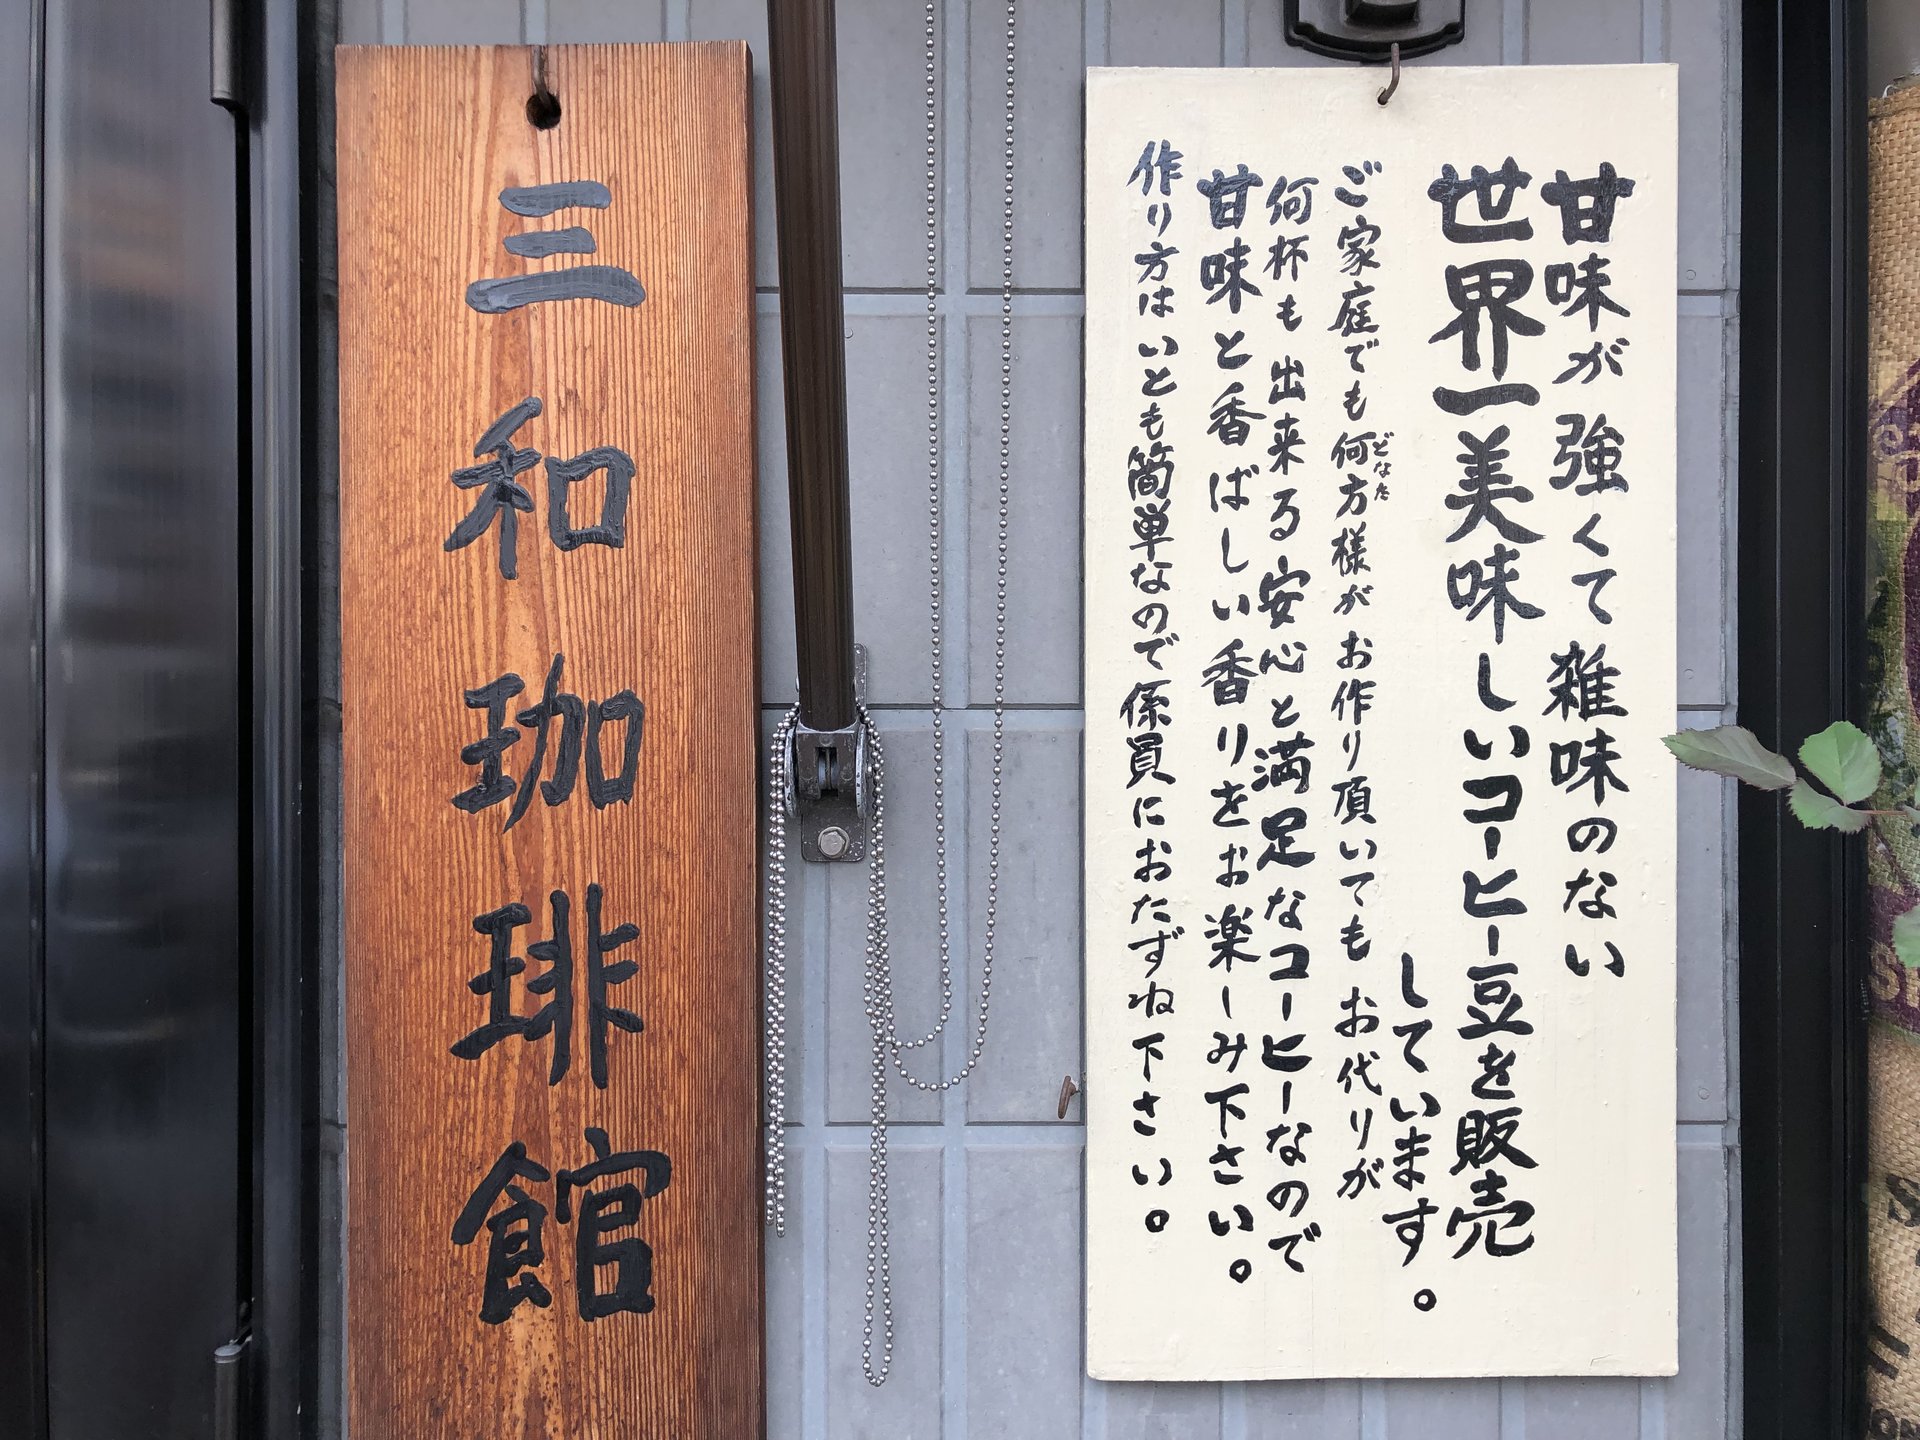 三和珈琲館
甘味が強くて雑味のない
世界一美味しいコーヒー豆を販売
しています。
ご家庭でも何方様がお作り頂いてもお代りが
どなた
何杯も出来る安心と満足なコーヒーなので
甘味と香ばしい香りをお楽しみ下さい。
作り方はいとも簡単なので係員におたずね下さい。